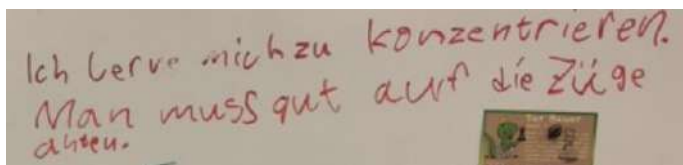 Ich lerne mich zu konzentrieren.
Man muss gut auf die Züge
achten.
Der Bauer